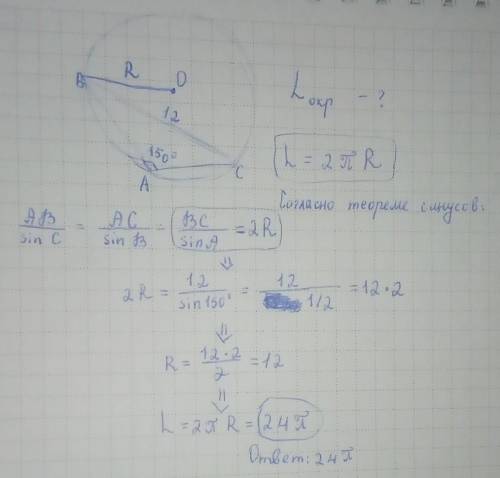 B R O
12
150°
A C
L окр - ?
L = 2πR
Согласно теореме синусов:
AB/sin C = AC/sin B = BC/sin A = 2R
⇓
2R = 12/sin 150° = 12/1/2 = 12·2
⇓
R = 12·2/2 = 12
⇓
L = 2πR = 24π
Ответ: 24π